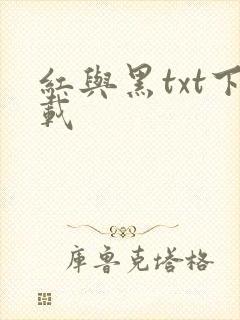 紅與黑txt下
載
庫魯克塔格